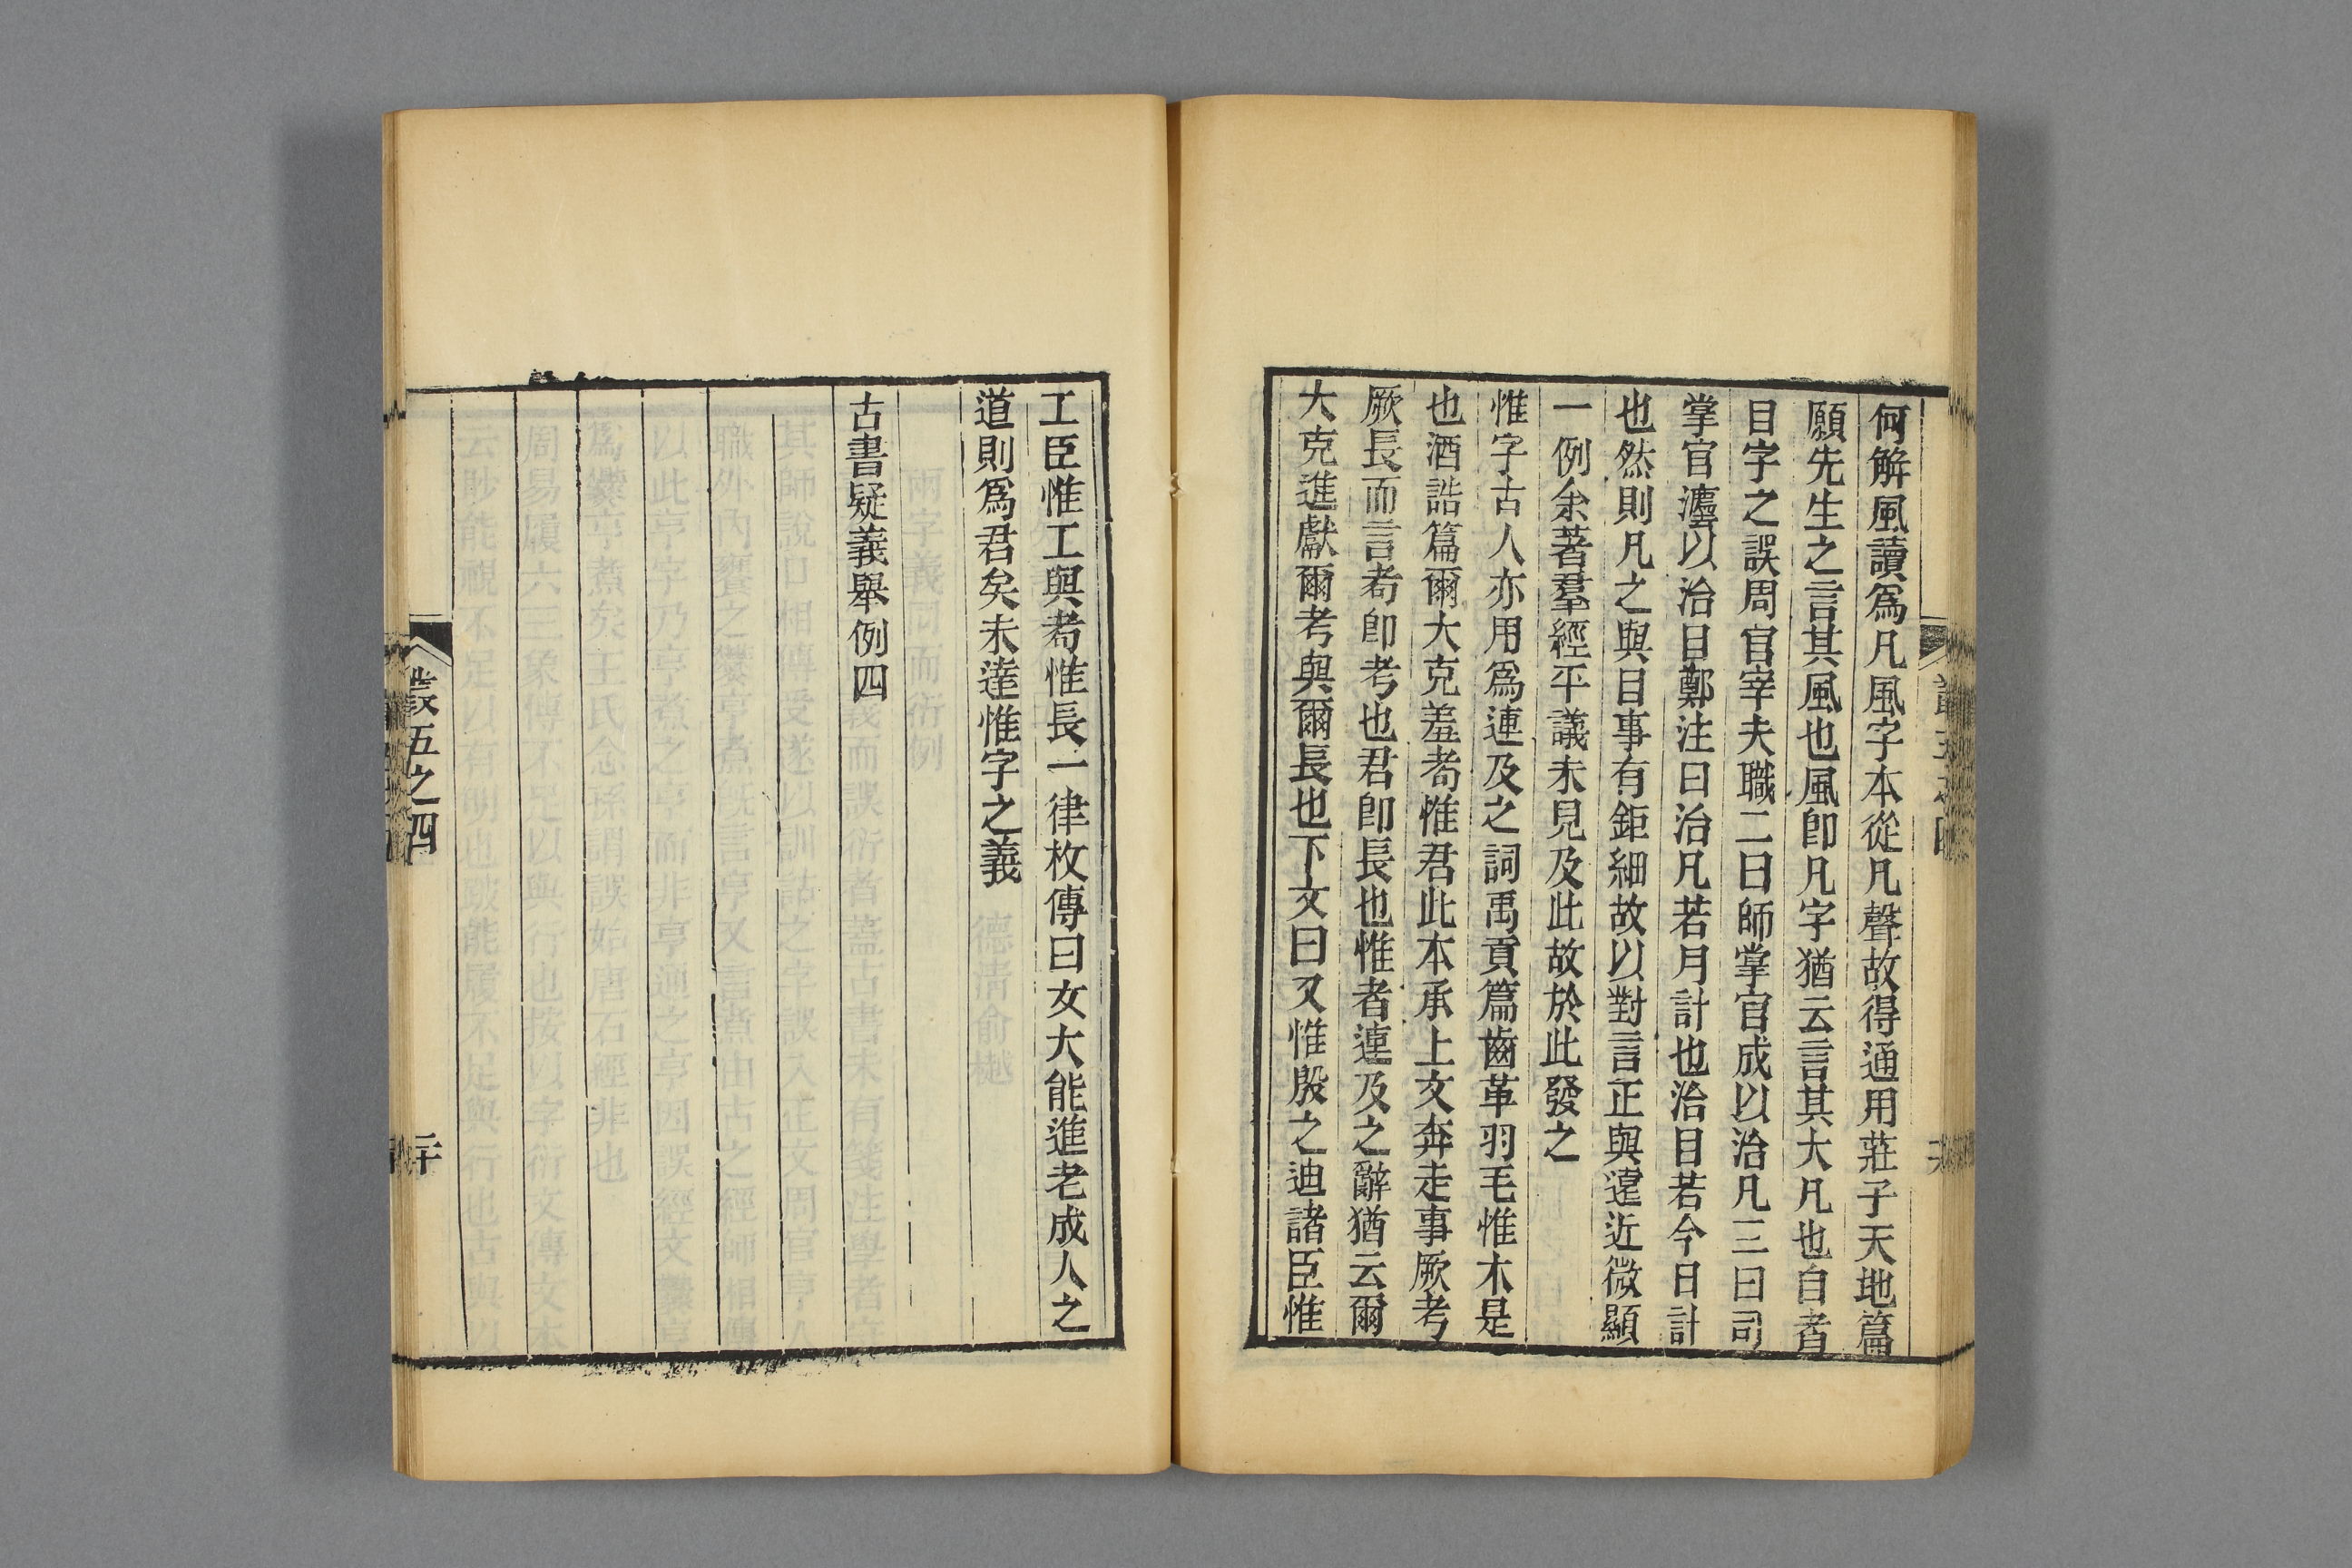 何解風讀爲凡風字本從凡聲故得通用莊子天地篇
願先生之言其風也風卽凡字猶云言其大凡也自者
目字之誤周官宰夫職二曰師掌官成以治凡三曰司
掌官灋以治目鄭注曰治凡若月計也治目若今日計
也然則凡之與目事有鉅細故以對言正與遠近微顯
一例余著羣經平議未見及此故於此發之
惟字古人亦用爲連及之詞禹貢篇齒革羽毛惟木是
也酒誥篇爾大克羞耇惟君此本承上文奔走事厥考
厥長而言耇卽考也君卽長也惟者連及之辭猶云爾
大克進獻爾考與爾長也下文曰又惟殷之迪諸臣惟
工臣惟工與耇惟長一律枚傳曰女大能進老成人之
道則爲君矣未達惟字之義
古書疑義舉例四
叢五之四
二十